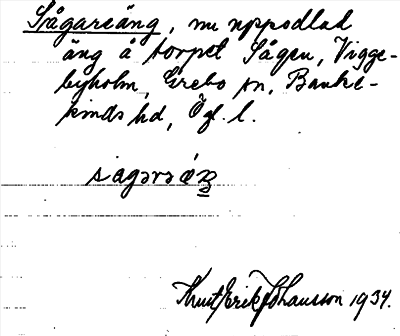 Sågareäng, nu uppodlad
äng å torpet Sågen, Vigge-
byholm, Grebo sn, Banke-
kinds hd, Ögl. l.
sagərəæŋ
Knut Erik Johansson 1934.